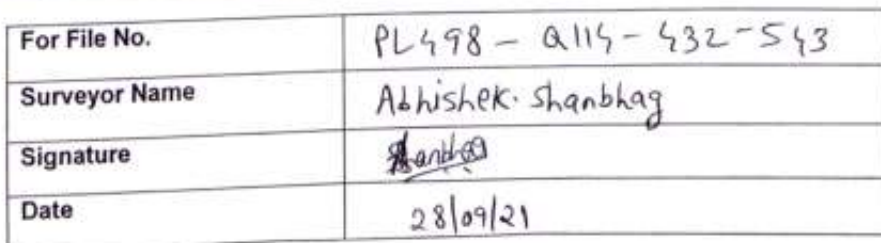 For File No. PL498 - Q114 - 432 - 543
Surveyor Name Abhishek. Shanbhag
Signature Shanbhag
Date 28/09/21